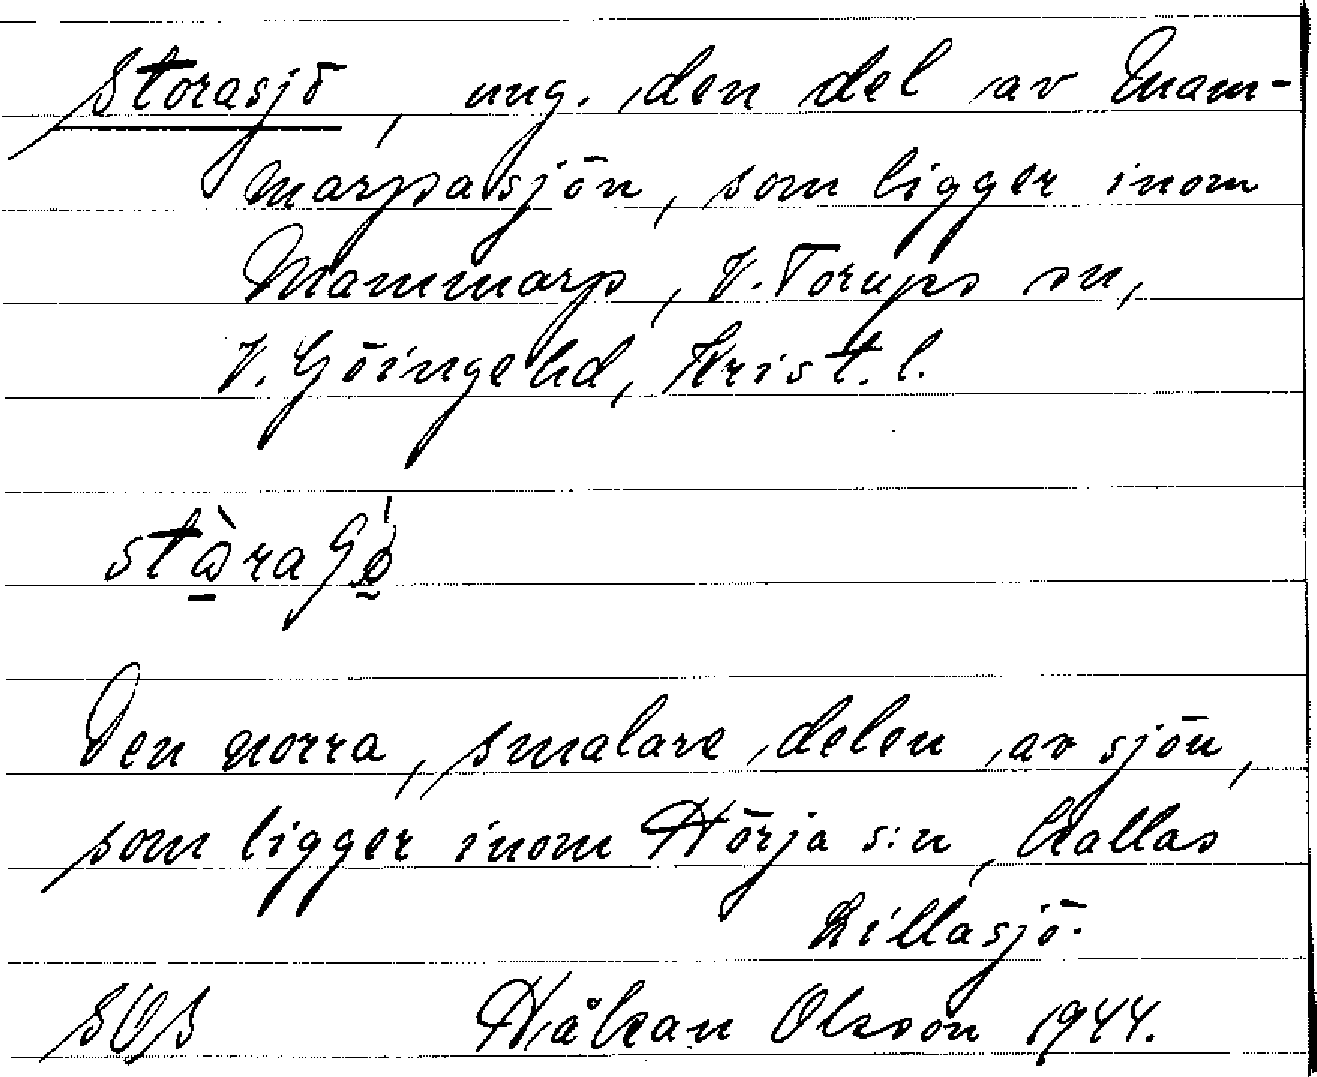 Storasjö, ung. den del av Mam-
marpasjön, som ligger inom
Mammarp, V. Torups sn,
V. Göinge hd, Krist. l.
Den norra, smalare delen av sjön,
som ligger inom Hörja s:n, kallas
Lillasjö.
SOS Håkan Olsson 1944.